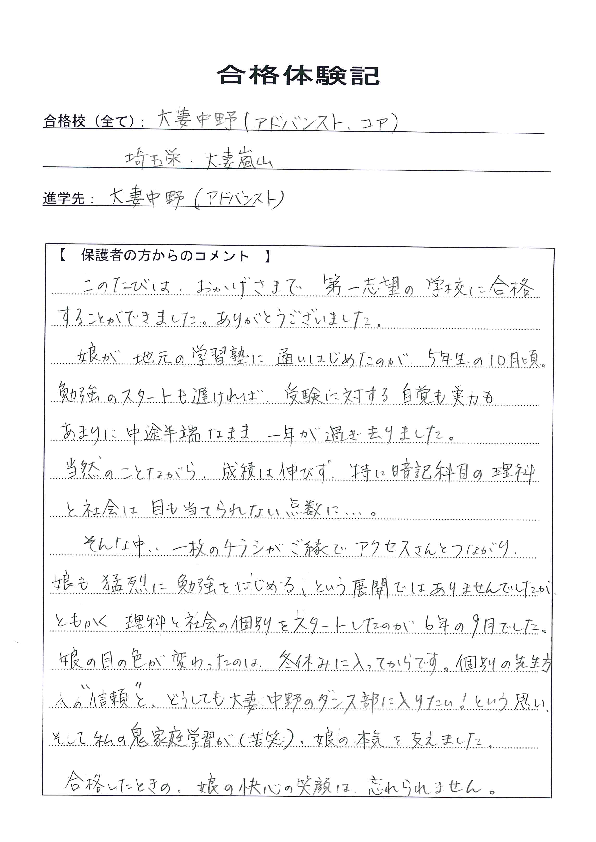 合格体験記
合格校（全て）： 大妻中野（アドバンスト、コア）
埼玉栄・大妻嵐山
進学先： 大妻中野（アドバンスト）
【 保護者の方からのコメント 】
このたびは、おかげさまで 第一志望の学校に合格
することができました。ありがとうございました。
娘が 地元の学習塾に 通いはじめたのが、5年生の10月頃。
勉強のスタートも遅ければ、受験に対する自覚も実力も
あまりに中途半端なまま 一年が過ぎ去りました。
当然のことながら、成績は伸びず、特に暗記科目の理科
と社会は 目も当てられない点数に…。
そんな中、一枚のチラシがご縁でアクセスさんとつながり、
娘も 猛烈に 勉強をはじめる、という展開ではありませんでしたが
ともかく 理科と社会の個別をスタートしたのが 6年の9月でした。
娘の目の色が変わったのは、冬休みに入ってからです。個別の先生方
への"信頼"と、どうしても大妻中野のダンス部に入りたい！という思い、
そして私の鬼家庭学習が（苦笑）、娘の本気を支えました。
合格したときの、娘の快心の笑顔は、忘れられません。